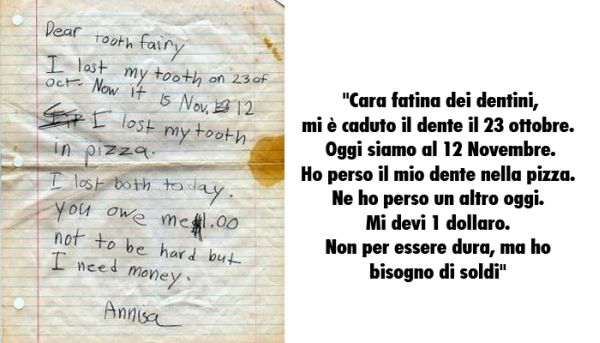 Dear tooth fairy
I lost my tooth on 23 of
oct. Now it is Nov. 12
I lost my tooth
in pizza.
I lost both today.
you owe me $1.00
not to be hard but
I need money.
Annisa
"Cara fatina dei dentini,
mi è caduto il dente il 23 ottobre.
Oggi siamo al 12 Novembre.
Ho perso il mio dente nella pizza.
Ne ho perso un altro oggi.
Mi devi 1 dollaro.
Non per essere dura, ma ho
bisogno di soldi"